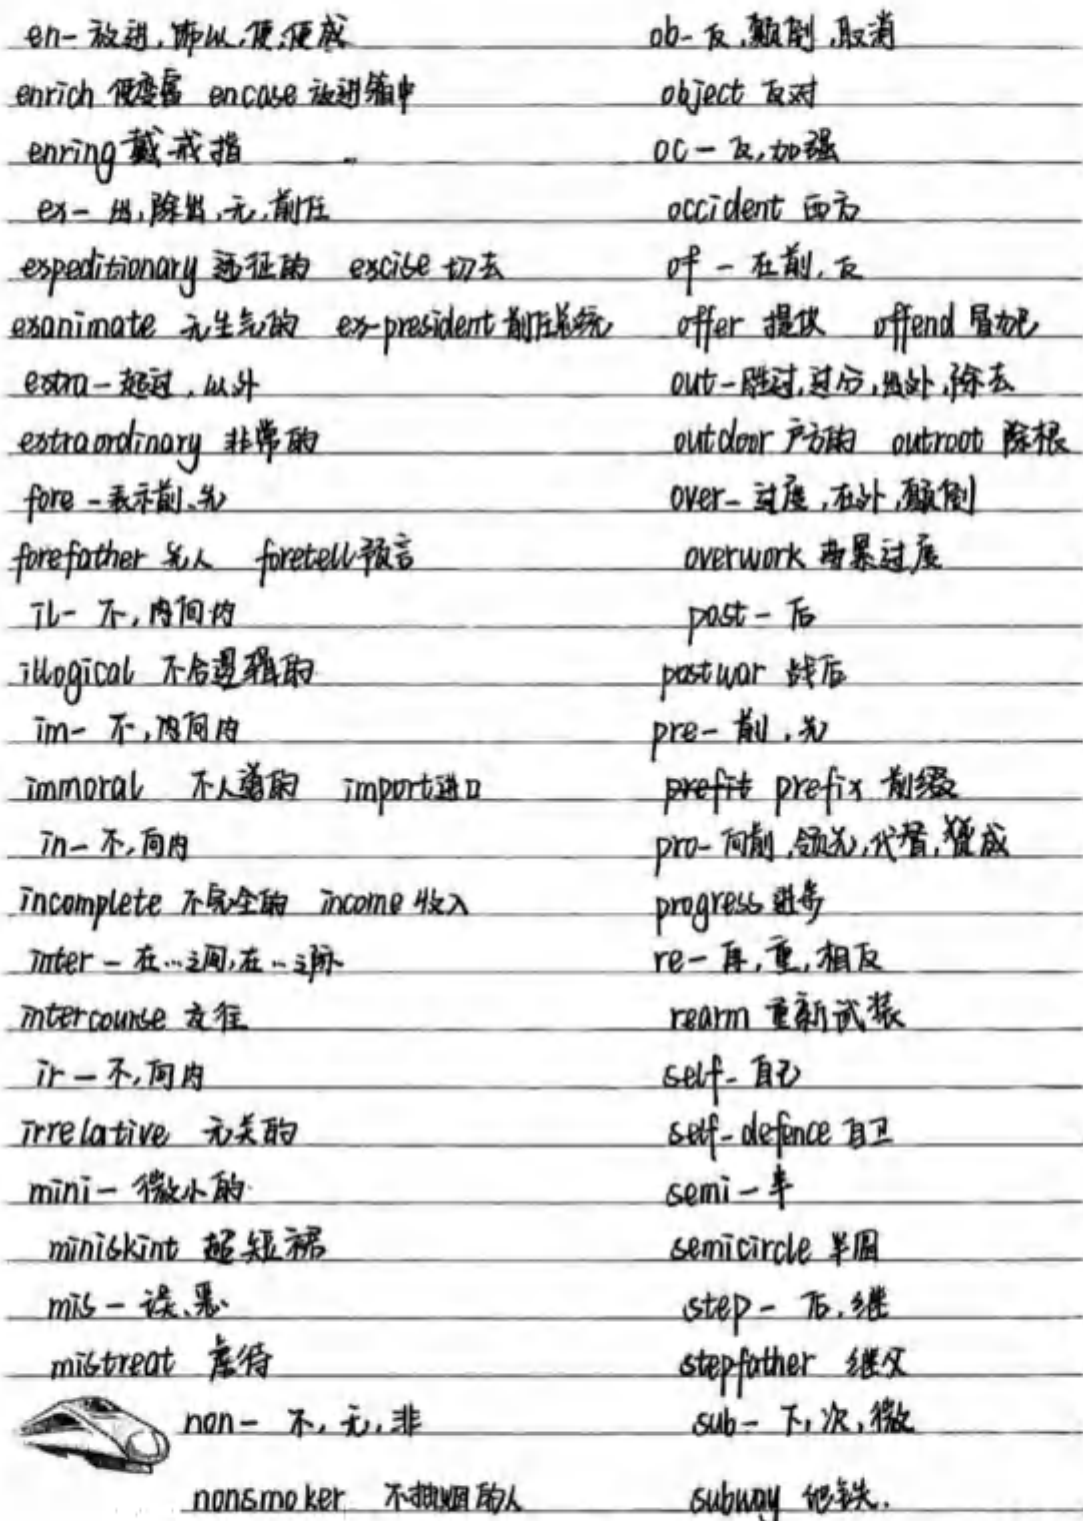 en- 放进,饰以,使,使成
enrich 使变富 encase 放进箱中
enring 戴戒指
ex- 出,除出,无,前任
expeditionary 远征的 excise 切去
exanimate 无生气的 ex-president 前任总统
extra- 超过,以外
extraordinary 非常的
fore- 表示前、先
forefather 先人 foretell 预言
il- 不,内向内
illogical 不合逻辑的
im- 不,内向内
immoral 不人道的 import 进口
in- 不,向内
incomplete 不完全的 income 收入
inter- 在…之间,在…之际
intercourse 交往
ir- 不,向内
irrelative 无关的
mini- 微小的
miniskint 超短裙
mis- 误、恶
mistreat 虐待
non- 不,无,非
nonsmoker 不抽烟的人
ob- 反,颠倒,取消
object 反对
oc- 反,加强
occident 西方
of- 在前,反
offer 提供 offend 冒犯
out- 胜过,过分,出外,除去
outdoor 户方的 outroot 除根
over- 过度,在外,颠倒
overwork 劳累过度
post- 后
postwar 战后
pre- 前,先
prefit prefix 前缀
pro- 向前,领先,代替,赞成
progress 进步
re- 再,重,相反
rearm 重新武装
self- 自己
self-defence 自卫
semi- 半
semicircle 半圆
step- 后,继
stepfather 继父
sub- 下,次,微
subway 地铁.